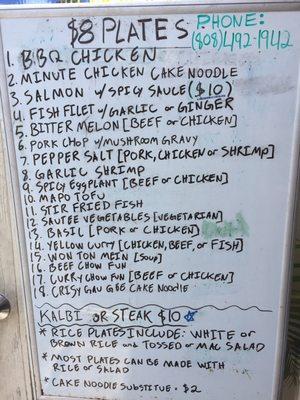 $8 PLATES
PHONE:
(808)492-1942
1. BBQ CHICKEN
2. MINUTE CHICKEN CAKE NOODLE
3. SALMON w/SPICY SAUCE ($10)
4. FISH FILET w/GARLIC or GINGER
5. BITTER MELON [BEEF or CHICKEN]
6. PORK CHOP w/MUSHROOM GRAVY
7. PEPPER SALT [PORK, CHICKEN or SHRIMP]
8. GARLIC SHRIMP
9. SPICY EGGPLANT [BEEF or CHICKEN]
10. MAPO TOFU
11. STIR FRIED FISH
12. SAUTEE VEGETABLES [VEGETARIAN]
13. BASIL [PORK or CHICKEN]
14. YELLOW CURRY [CHICKEN, BEEF, or FISH]
15. WON TON MEIN [SOUP]
16. BEEF CHOW FUN
17. CURRY CHOW FUN [BEEF or CHICKEN]
18. CRISPY GAU GEE CAKE NOODLE
KALBI or STEAK $10
* RICE PLATES INCLUDE: WHITE or
BROWN RICE and TOSSED or MAC SALAD
* MOST PLATES CAN BE MADE WITH
RICE or SALAD
* CAKE NOODLE SUBSTITUE - $2